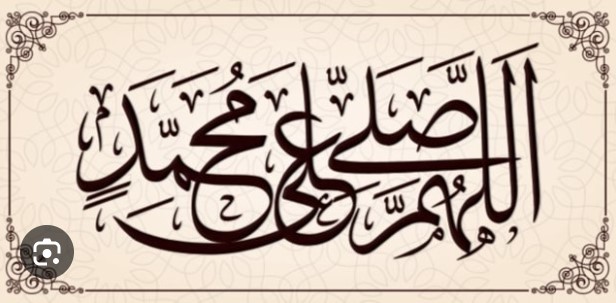 اَللّٰهُمَّ صَلِّ عَلٰى مُحَمَّدٍ